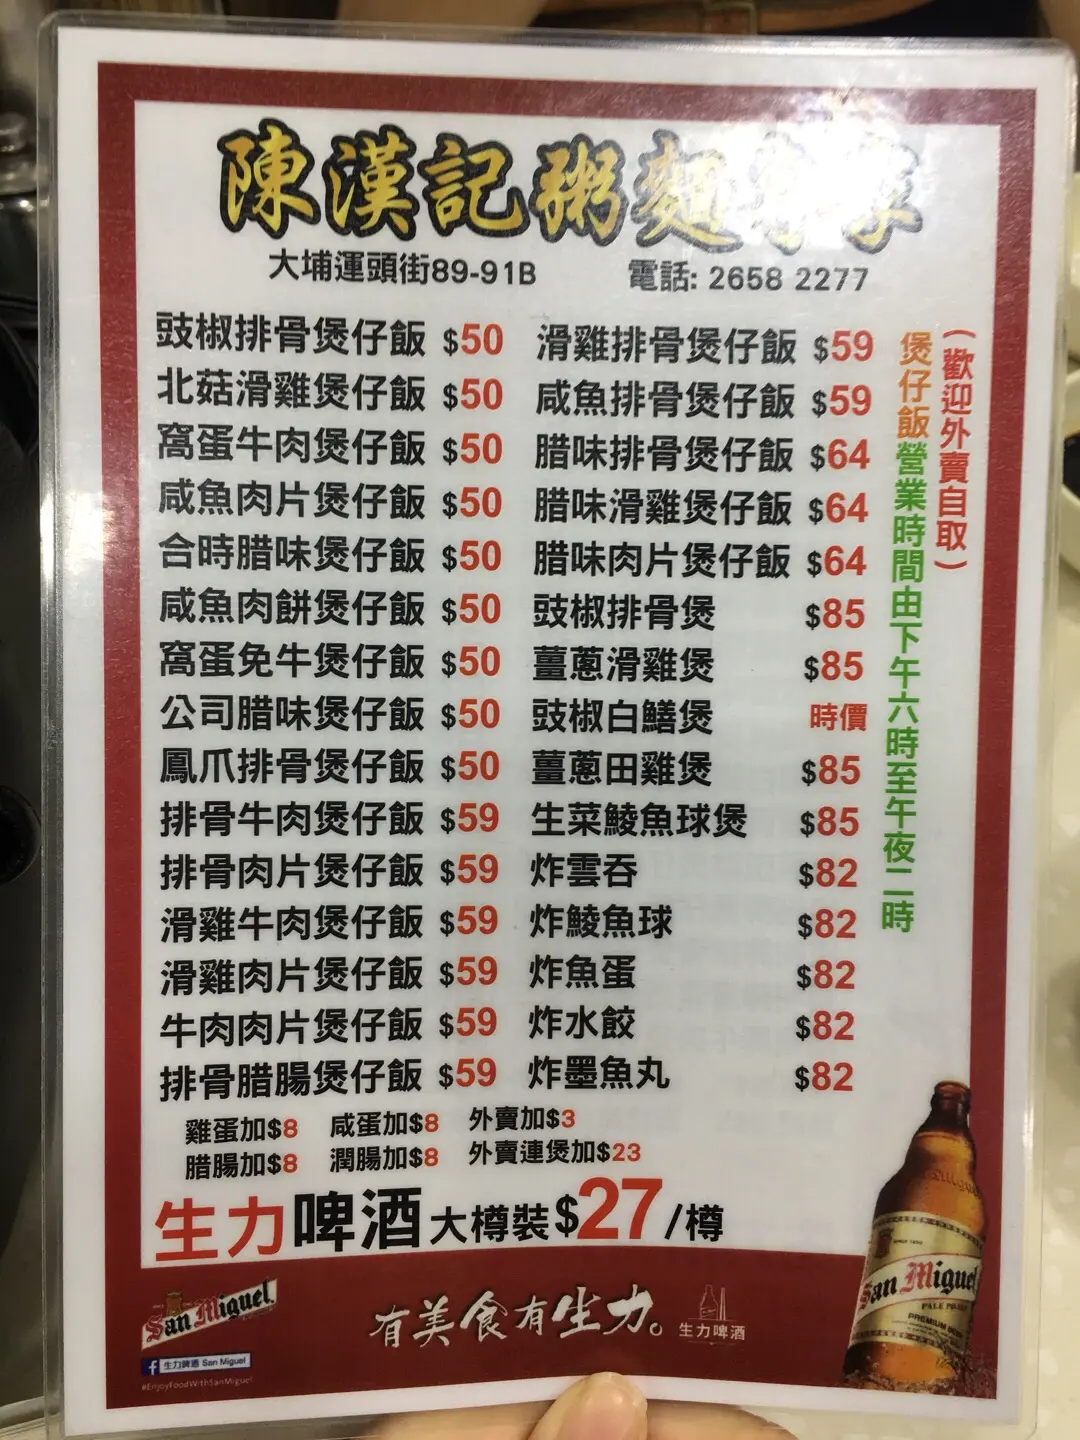 陳漢記粥麵專家
大埔運頭街89-91B 電話: 2658 2277
豉椒排骨煲仔飯 $50
北菇滑雞煲仔飯 $50
窩蛋牛肉煲仔飯 $50
咸魚肉片煲仔飯 $50
合時腊味煲仔飯 $50
咸魚肉餅煲仔飯 $50
窩蛋免牛煲仔飯 $50
公司腊味煲仔飯 $50
鳳爪排骨煲仔飯 $50
排骨牛肉煲仔飯 $59
排骨肉片煲仔飯 $59
滑雞牛肉煲仔飯 $59
滑雞肉片煲仔飯 $59
牛肉肉片煲仔飯 $59
排骨腊腸煲仔飯 $59
滑雞排骨煲仔飯 $59
咸魚排骨煲仔飯 $59
腊味排骨煲仔飯 $64
腊味滑雞煲仔飯 $64
腊味肉片煲仔飯 $64
豉椒排骨煲 $85
薑蔥滑雞煲 $85
豉椒白鱔煲 時價
薑蔥田雞煲 $85
生菜鯪魚球煲 $85
炸雲吞 $82
炸鯪魚球 $82
炸魚蛋 $82
炸水餃 $82
炸墨魚丸 $82
(歡迎外賣自取)
煲仔飯營業時間由下午六時至午夜二時
雞蛋加$8 咸蛋加$8 外賣加$3
腊腸加$8 潤腸加$8 外賣連煲加$23
生力啤酒大樽裝$27/樽
San Miguel
有美食有生力。
生力啤酒
生力啤酒 San Miguel
#EnjoyFoodWithSanMiguel
San Miguel
PALE PILSEN
PREMIUM BEER